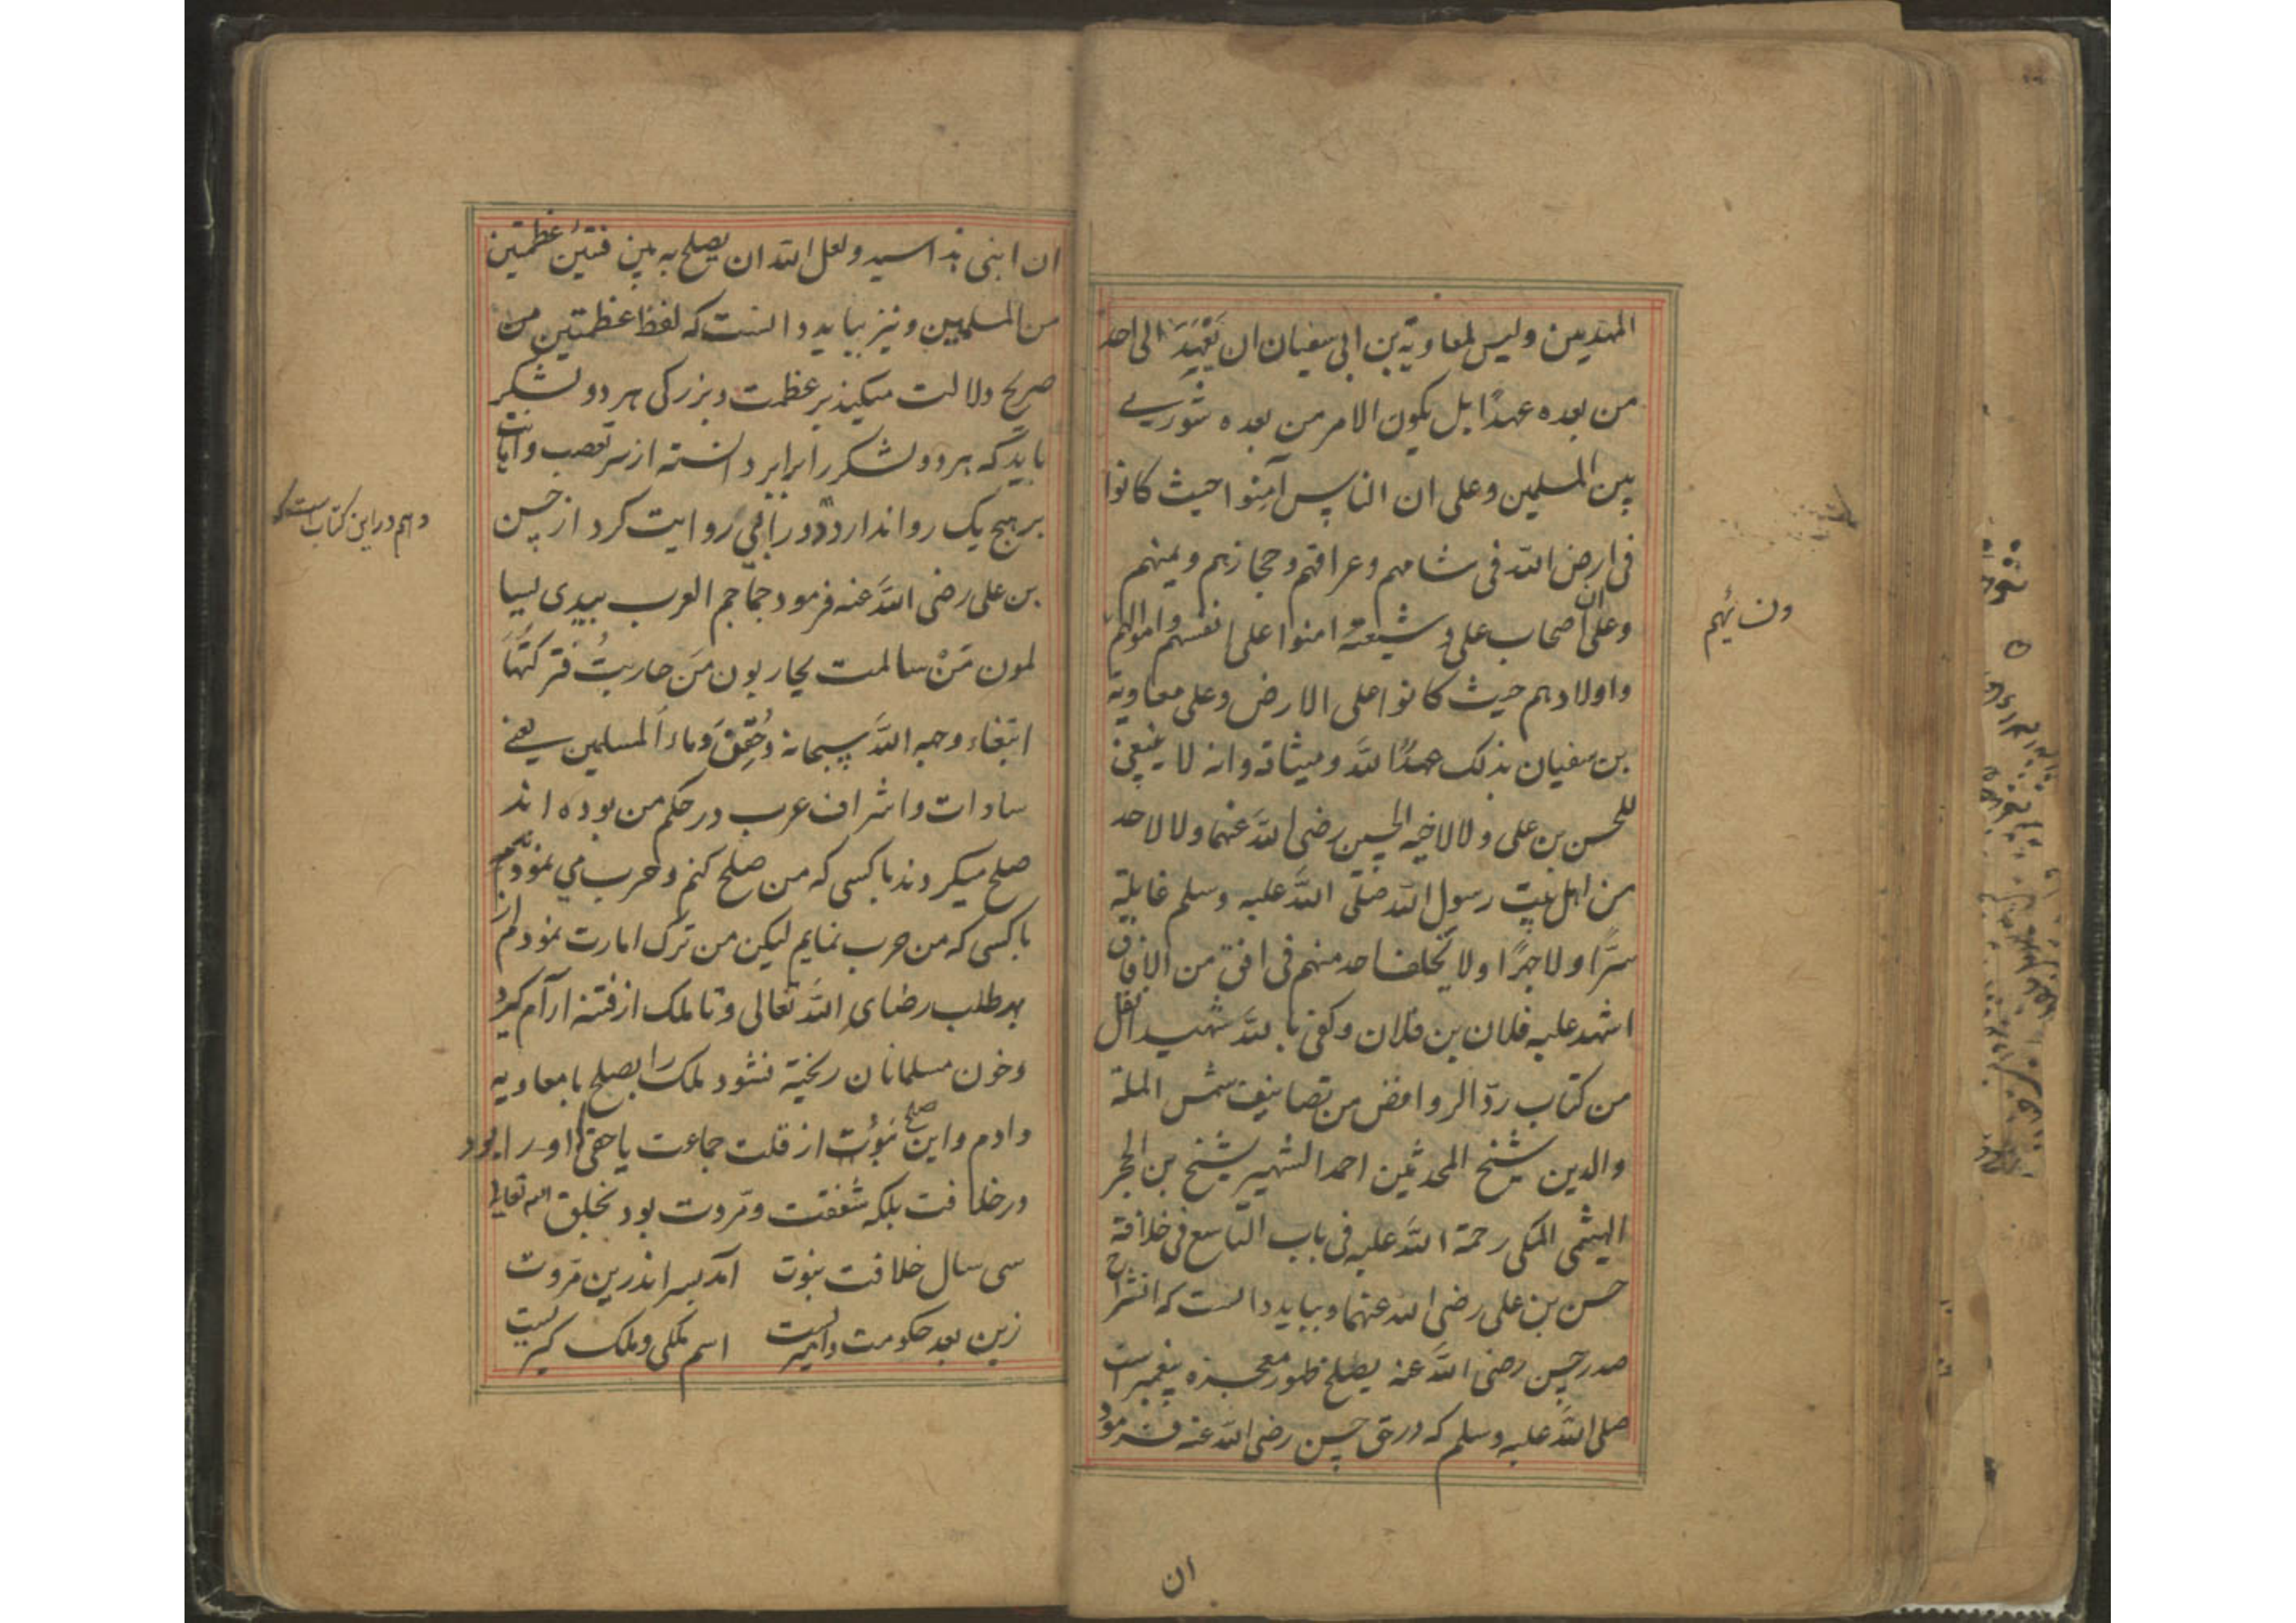 المهديين وليس لمعاوية بن ابي سفيان ان يَعْهَدَ الى احد
من بعده عهدًا بل يكون الامر من بعده شورے
بين المسلمين وعلى ان الناس آمنوا حيث كانوا
فى ارض الله فى شامهم وعراقهم وحجازهم ويمنهم
وعلى ان اصحاب على و شيعته امنوا على انفسهم واموالهم
واولادهم حيث كانوا على الارض وعلى معاوية
بن سفيان بذلك عهدُ الله وميثاقه وانه لا يبتغي
للحسن بن على ولا لاخيه الحسين رضى الله عنهما ولا لاحد
من اهل بيت رسول الله صلى الله عليه وسلم غايلة
سرًّا ولا جهرًا ولا يخلف احد منهم فى افق من الافاق
اشهد عليه فلان بن فلان وكفى بالله شهيدا نقل
من كتاب ردّ الروافض من تصانيف شمس الملة
والدين شيخ المحدثين احمد الشهير شيخ بن الحجر
الهيثمى المكى رحمة الله عليه فى باب التاسع فى خلافة
حسن بن على رضى الله عنهما و ببايد دانست كه انشراح
صدر حسن رضى الله عنه بصلح ظهور معجزه پيغمبر است
صلى الله عليه وسلم كه در حق حسن رضى الله عنه فرمود
ان
ان ابنى هذا سيد ولعل الله ان يصلح به بين فئتين عظمتين
من المسلمين و نيز ببايد دانست كه لفظ عظمتين من
صريح دلالت ميكند بر عظمت و بزركى هر دو لشكر
بايد كه هر دو لشكر را برابر دانسته از سر تعصب واهانت
بر هيچ يك روا ندارد و رافعي روايت كرد از حسن
بن على رضى الله عنه فرمود جماجم العرب بيدى يسا
لمون مَنْ سالمت يحاربون مَن حاربتُ فتركتُهَا
ابتغاء وجه الله سبحانه وحقن دماء المسلمين يعنے
سادات و اشراف عرب در حكم من بوده اند
صلح ميكردند با كسى كه من صلح كنم و حرب مي نمودند
با كسى كه من حرب نمايم ليكن من ترك امارت نمودم از
بهر طلب رضاى الله تعالى و تا ملك از فتنه ارآم كيرد
و خون مسلمانان ريخته نشود ملك را بصلح با معاويه
دادم و اين صلح نبود از قلت جماعت يا حقى او را بود
در خلافت بلكه شفقت و مروت بود بخلق الله تعالى
سى سال خلافت نبوت آمد بسر اندرين مروت
زين بعد حكومت و اميريست اسم ملكى و ملك كيريست
وهم در اين كتاب است كه